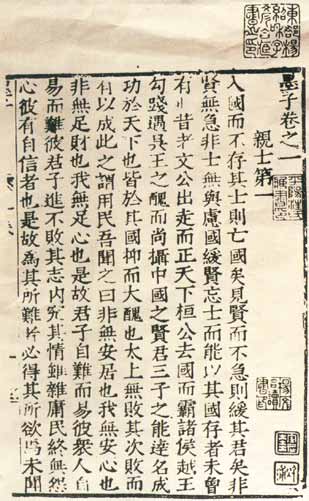 墨子卷之一
親士第一
入國而不存其士則亡國矣見賢而不急則緩其君矣非
賢無急非士無與慮國緩賢忘士而能以其國存者未曾
有也昔者文公出走而正天下桓公去國而霸諸侯越王
勾踐遇吳王之醜而尚攝中國之賢君三子之能達名成
功於天下也皆於其國抑而大醜也太上無敗其次敗而
有以成此之謂用民吾聞之曰非無安居也我無安心也
非無足財也我無足心也是故君子自難而易彼衆人自
易而難彼君子進不敗其志内究其情雖雜庸民終無怨
心彼有自信者也是故為其所難者必得其所欲焉未聞